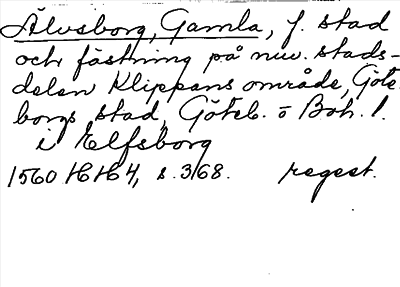 Älvsborg, Gamla, f. stad
och fästning på nuv. stads-
delen Klippans område, Göte-
borgs stad, Göteb. o Boh. l.
i Elfsborg
1560 HH 4, s. 368. regest.